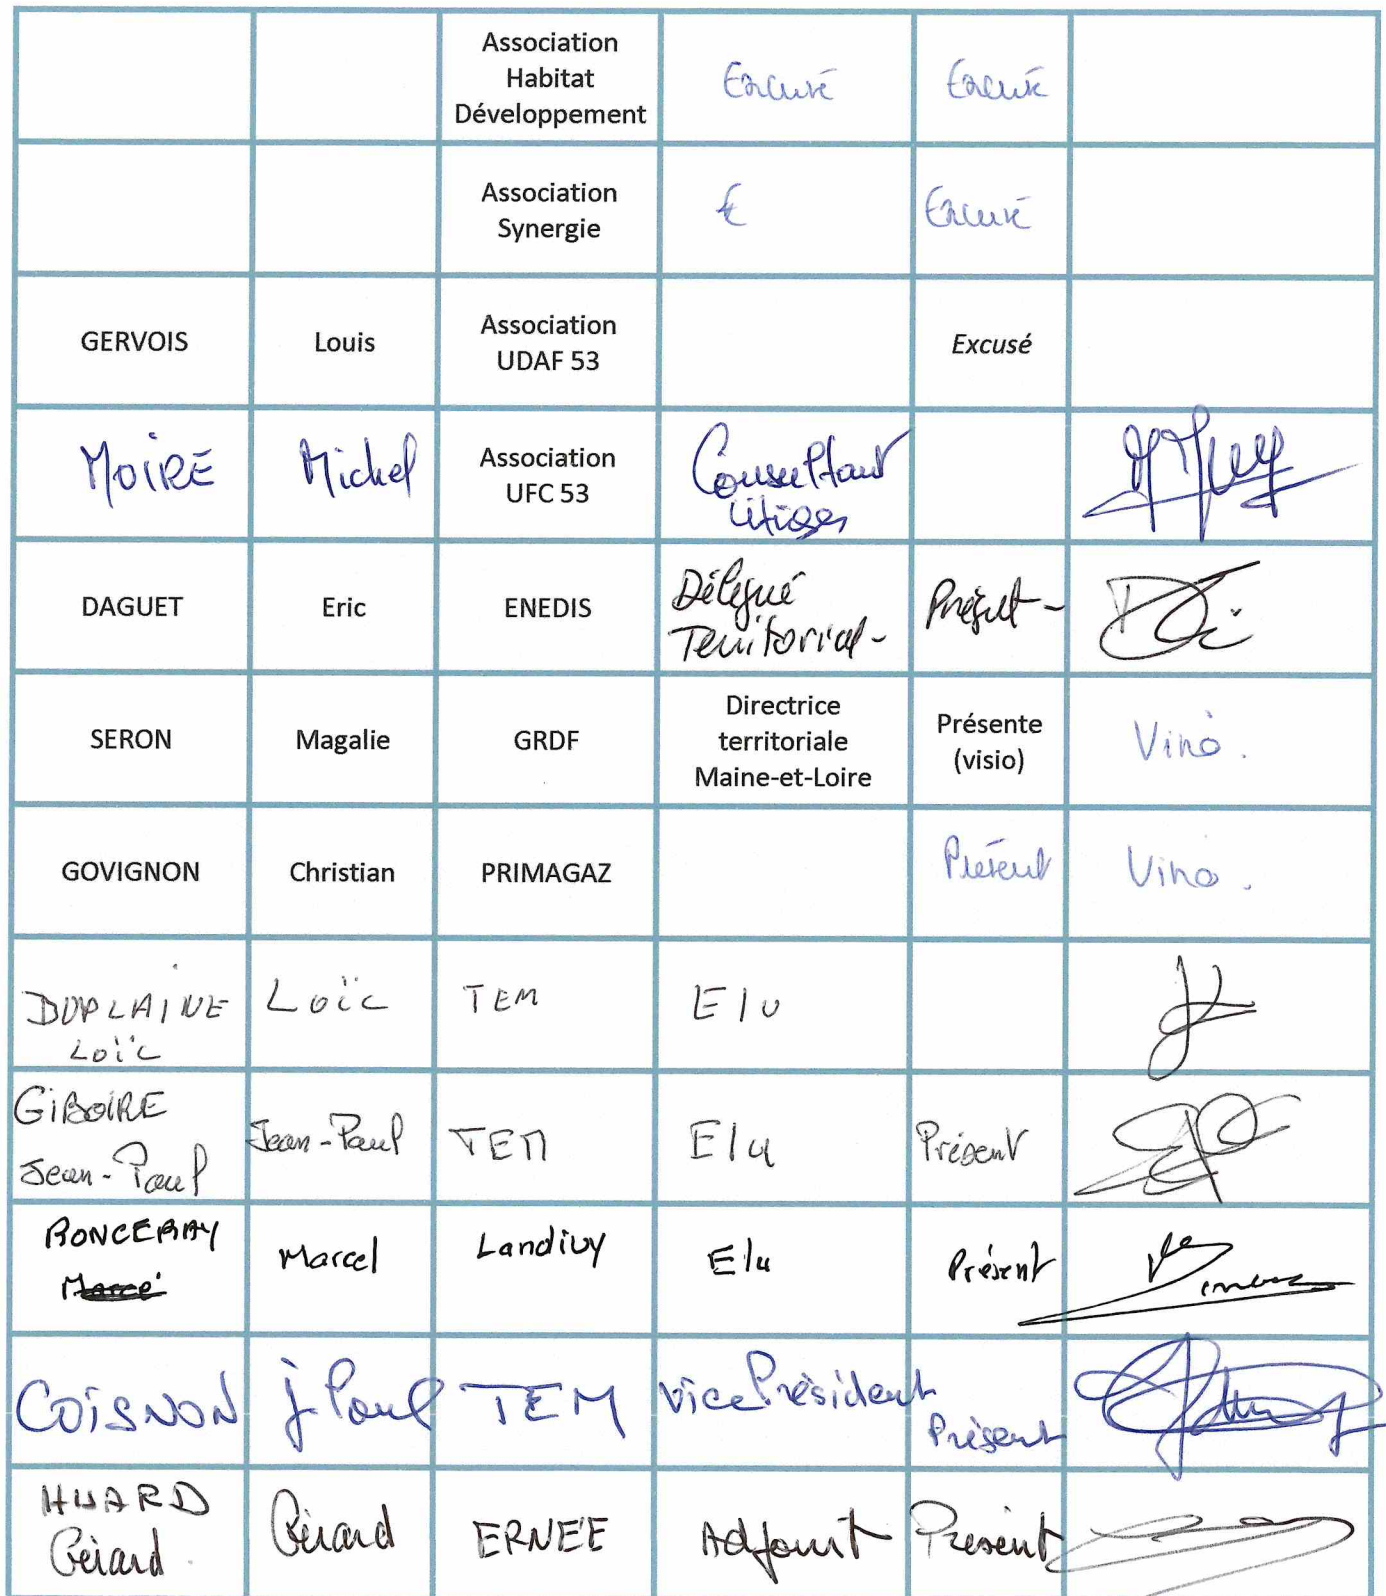 Association
Habitat
Développement
Excusé
Excusé
Association
Synergie
E
Excusé
GERVOIS
Louis
Association
UDAF 53
Excusé
MOIRÉ
Michel
Association
UFC 53
Consultant
litiges
DAGUET
Eric
ENEDIS
Délégué
Territorial-
Présent-
SERON
Magalie
GRDF
Directrice
territoriale
Maine-et-Loire
Présente
(visio)
Visio.
GOVIGNON
Christian
PRIMAGAZ
Présent
Visio.
DUPLAINE
Loïc
Loïc
TEM
Elu
GIBOIRE
Jean-Paul
Jean-Paul
TEM
Elu
Présent
RONCERAY
Marcel
Landivy
Elu
Présent
COISNON
J. Paul
TEM
Vice Président
Présent
HUARD
Gérard
Gérard
ERNÉE
Adjoint
Présent